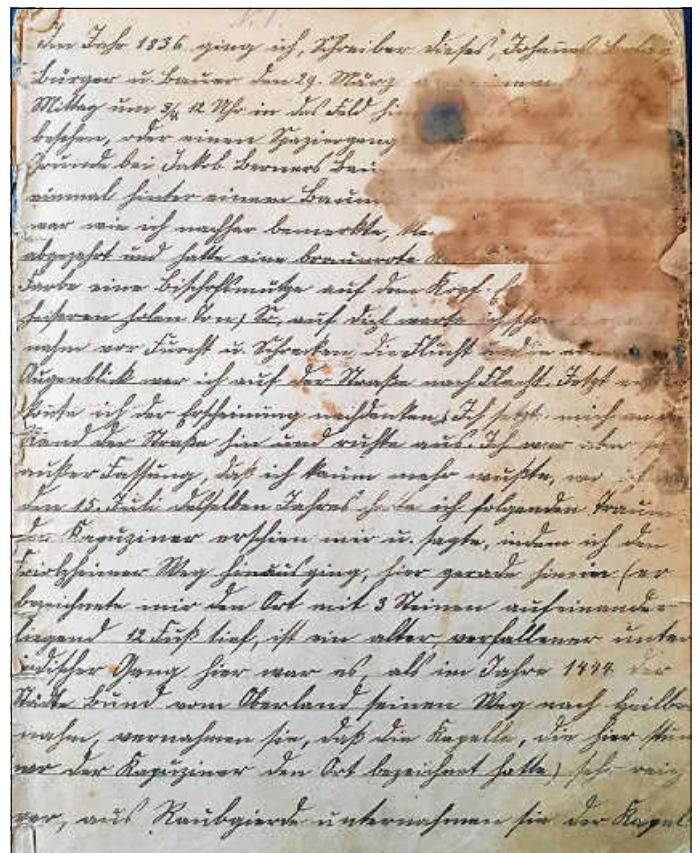 Im Jahr 1836 ging ich, Schreiber dieses, Johannes
Bürger u. Bauer den 29. März
Mittag um 3/4 12 Uhr in das Feld
besehen, oder einen Spaziergang
Grunde bei Jakob Berners
einmal hinter einem Baum
war wie ich nachher bemerkte,
abgezehrt und hatte eine braunrote
Farbe eine Bischofsmütze auf dem Kopf.
heiseren holen Ton; So, auf dich warte ich schon
nahm vor Furcht u. Schrecken die Flucht und in
Augenblick war ich auf der Straße nach Flacht. Jetzt
konte ich der Erscheinung nachdenken, Ich setzte mich an
Rand der Straße hin und ruhte aus. Ich war aber so
außer Fassung, daß ich kaum mehr wußte, wo ich
den 15. Juli desselben Jahres hatte ich folgenden Traum
der Kapuziner erschien mir u. sagte, indem ich den
Friolzheimer Weg hinaus ging, hier gerade hinein (er
bezeichnete mir den Ort mit 3 Steinen aufeinander
liegend 12 Fuß tief, ist ein alter verfallener unter
irdischer Gang hier war es, als im Jahre 1444 der
Städte Bund vom Oberland seinen Weg nach Heilbr
nahm, vernahmen sie, daß die Kapelle, die hier stun
wo der Kapuziner den Ort bezeichnet hatte) sehr reich
war, aus Raubgierde unternahmen sie der Kapel